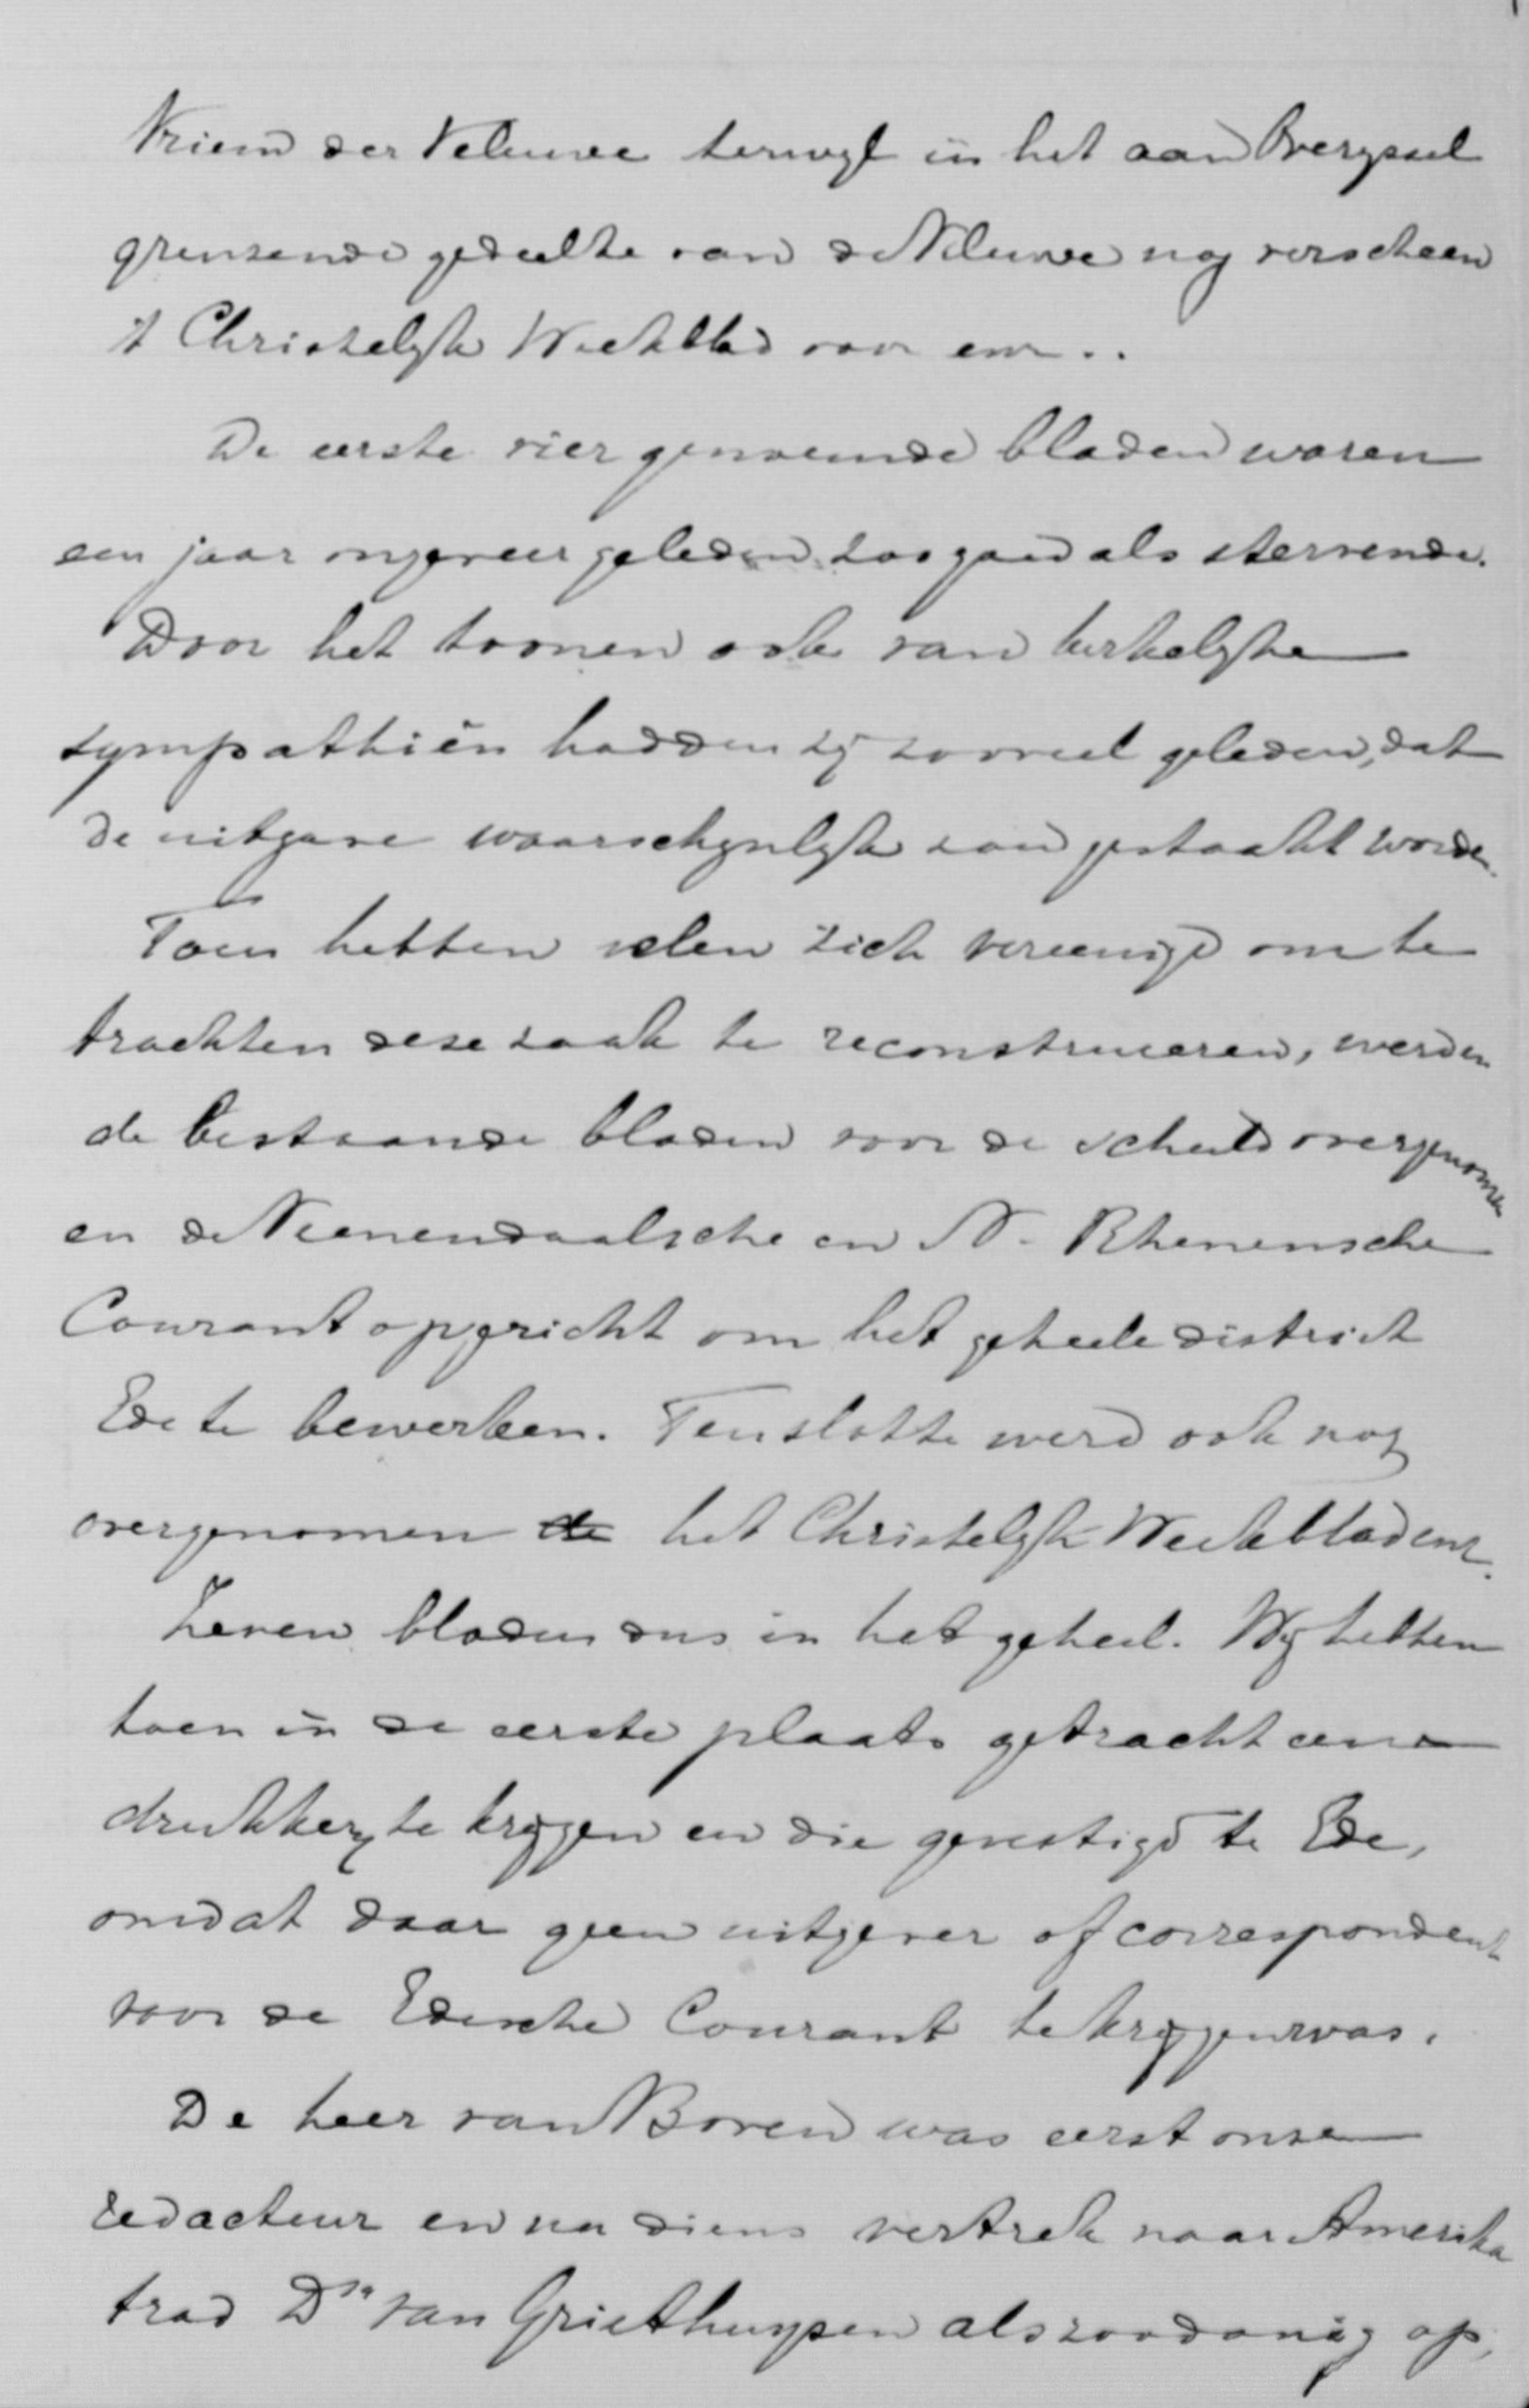 Vriend der Veluwe terwyl in het aan Overyssel
grenzende gedeelte van de Veluwe nog verscheen
't Christelyk Weekblad voor enz..
De eerste vier genoemde bladen waren
een jaar ongeveer geleden zoo goed als stervende.
Door het toonen ook van kerkelyke
sympathiën hadden zy zooveel geleden, dat
de uitgave waarschynlyk zou gestaakt worden.
Toen hebben velen zich vereenigd om te
trachten deze zaak te reconstrueeren, werden
de bestaande bladen voor de schuld overgenomen
en de Veenendaalsche en N. Rhenensche
Courant opgericht om het geheele district
Ede te bewerken. Tenslotte werd ook nog
overgenomen de het Christelyk Weekblad enz.
Zeven bladen dus in het geheel. Wy hebben
toen in de eerste plaats getracht eene
drukkery te krygen en die gevestigd te Ede,
omdat daar geen uitgever of correspondent
voor de Edesche Courant te krygen was.
De heer van Boven was eerst onze
redacteur en na diens vertrek naar Amerika
trad Ds van Griethuysen als zoodanig op,